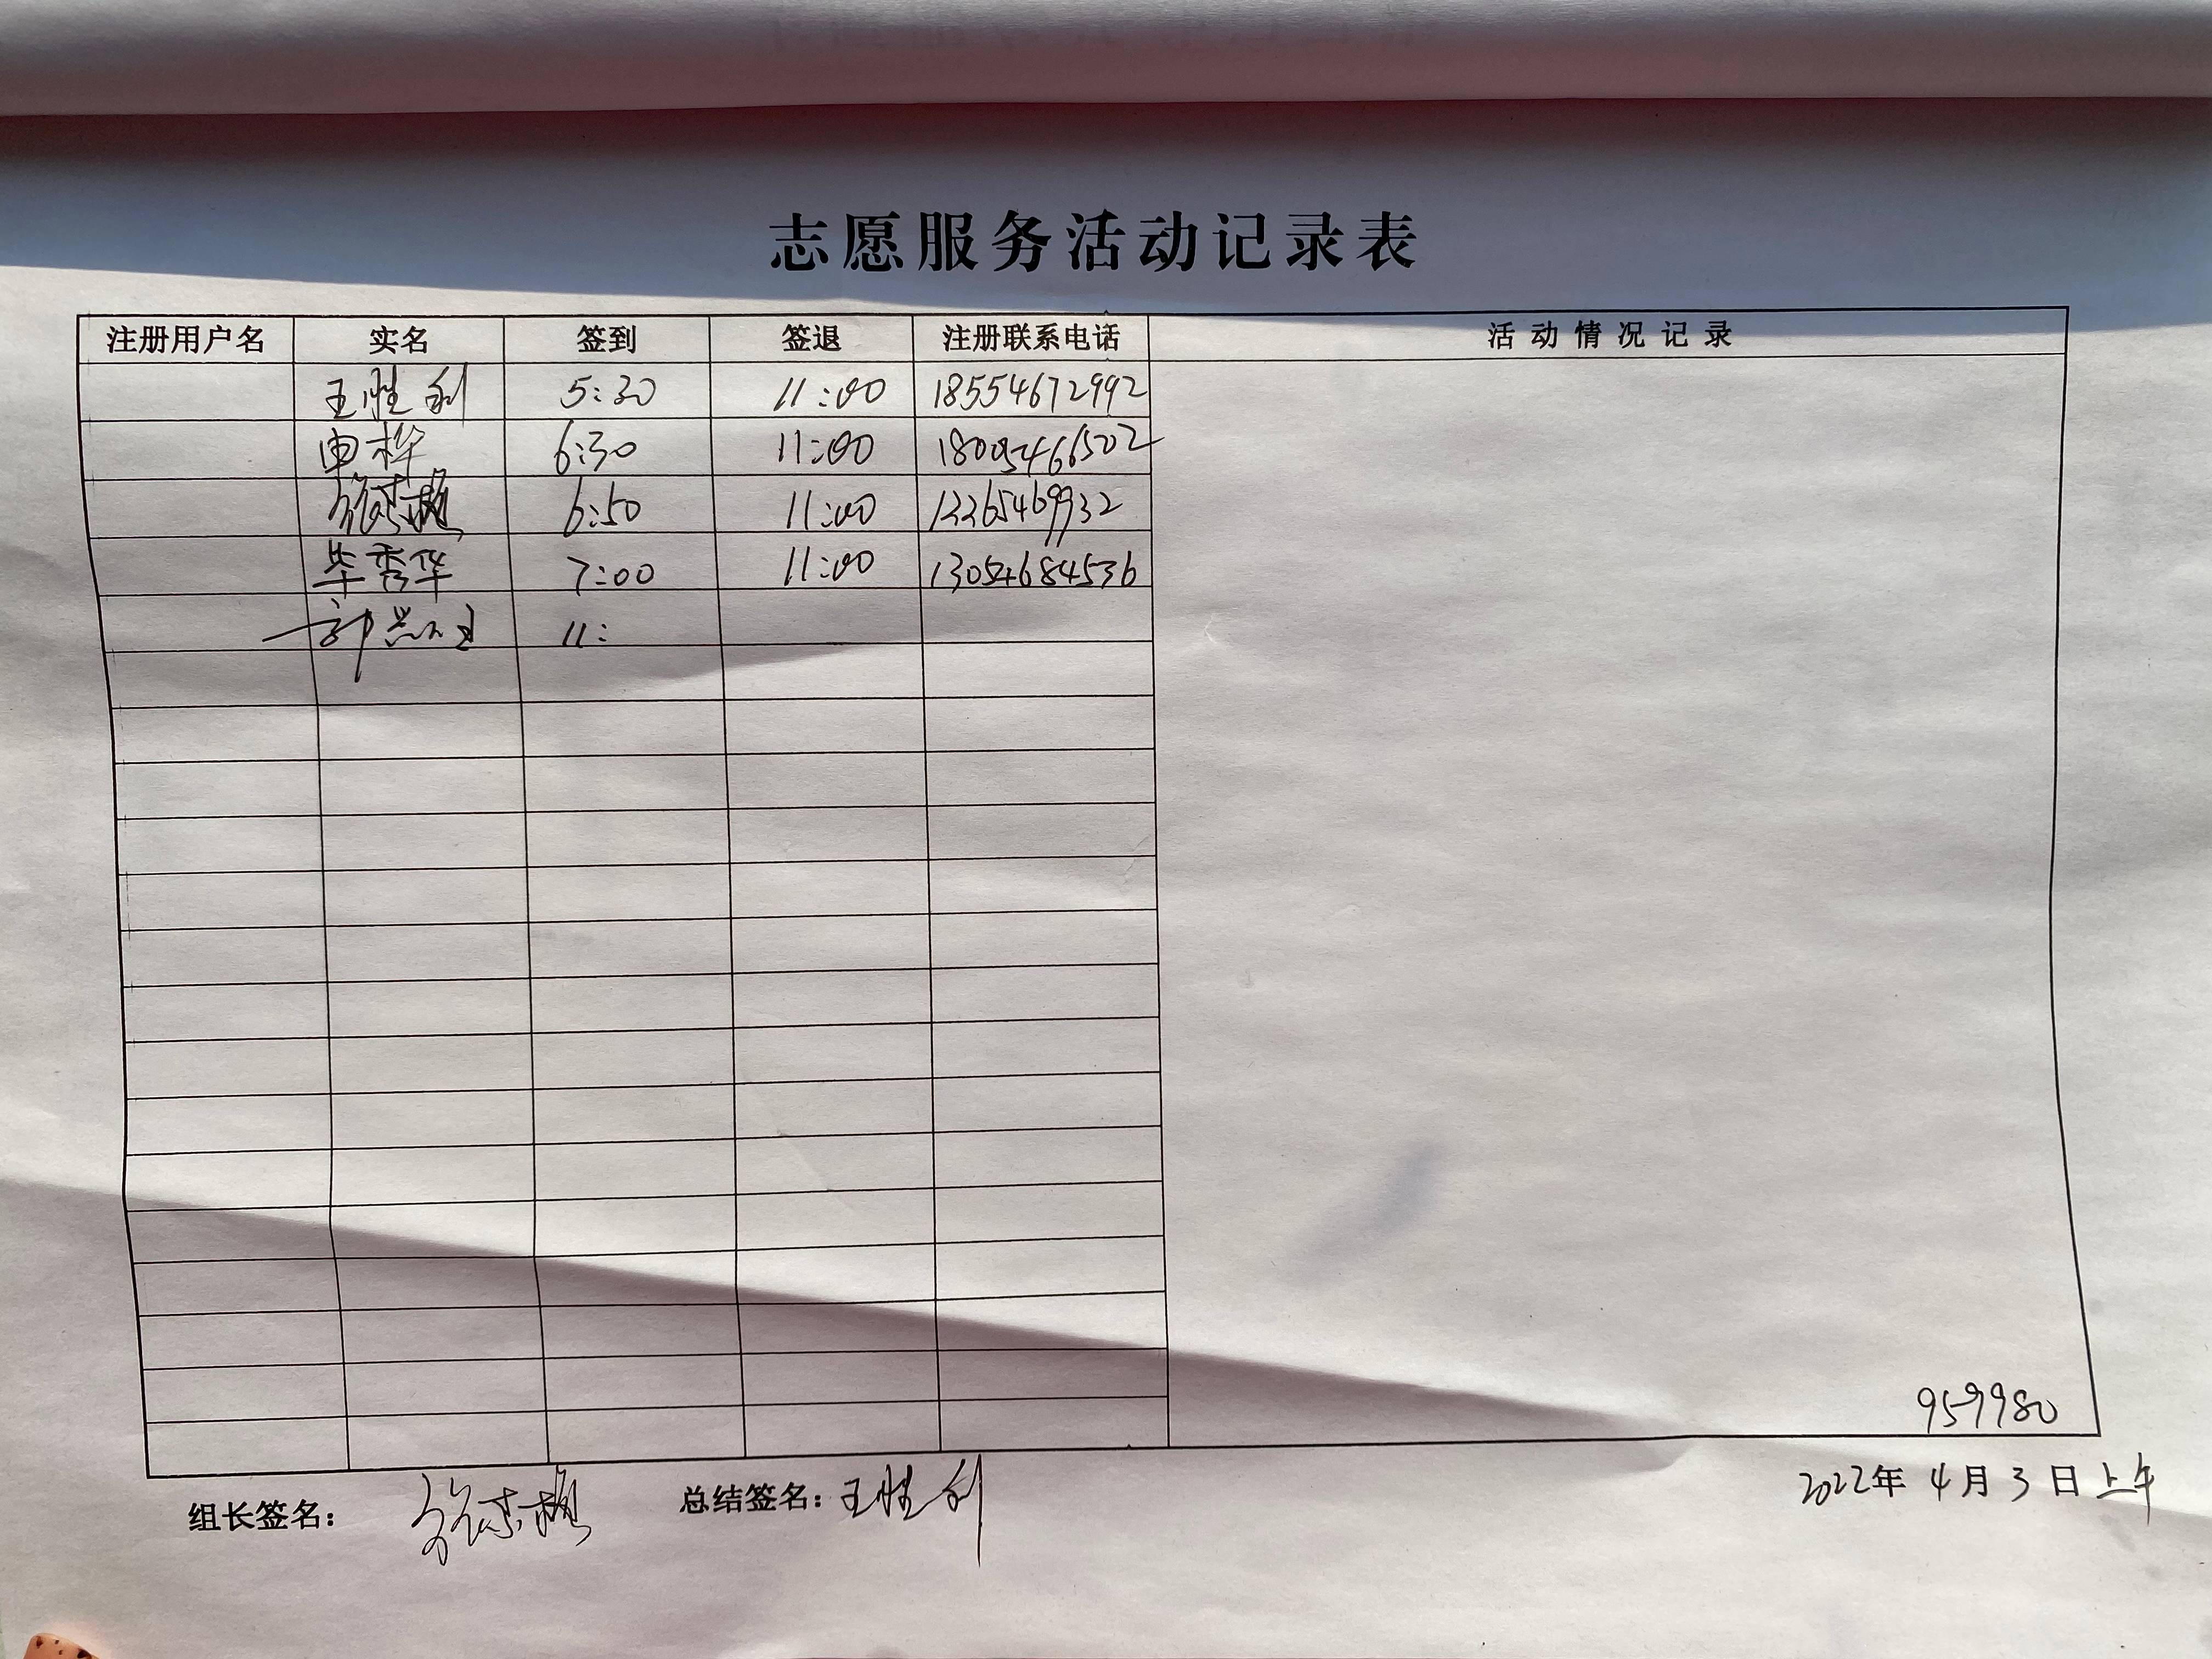 志愿服务活动记录表
注册用户名 实名 签到 签退 注册联系电话 活动情况记录
王胜利 5:30 11:00 18554672992
由桦 6:30 11:00 18005466502
6:50 11:00 13365469932
毕秀华 7:00 11:00 13054684536
11:
959980
组长签名: 总结签名:王胜利 2022年 4月 3日 上午